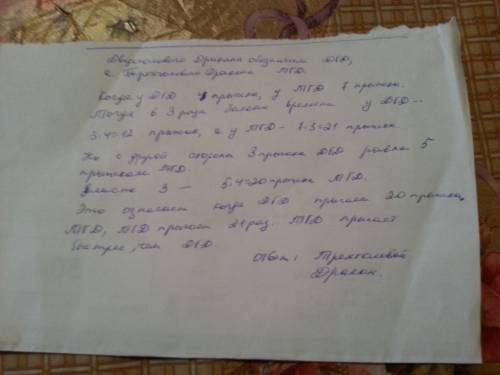 Двухголового Дракона обозначим ДГД,
а Трёхголовый Дракона ТГД.
Когда у ДГД 4 прыжка, у ТГД 7 прыжков.
Тогда в 3 раза больше времени у ДГД --
3·4=12 прыжков, а у ТГД - 7·3=21 прыжок.
Но с другой стороны 3 прыжка ДГД равны 5
прыжкам ТГД.
3 — 5·4=20 прыжков ТГД.
Это означает когда ДГД прыгает 20 прыжков
ТГД, ТГД прыгает 21 раз. ТГД прыгает
быстрее, чем ДГД.
Ответ: Трехголовой
Дракон.